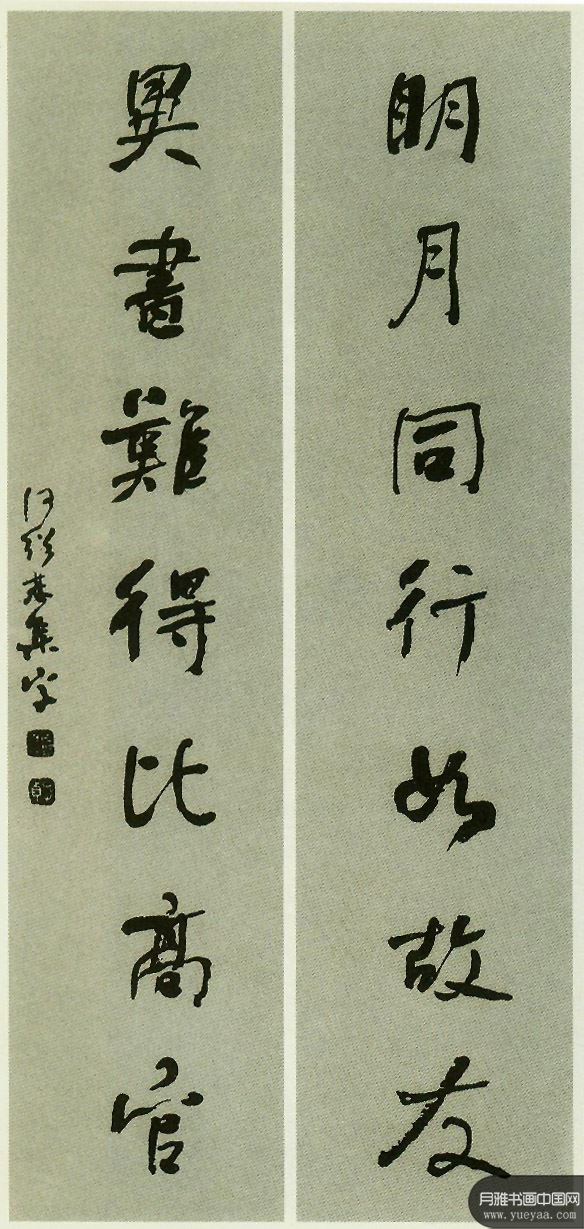 明月同行如故友
異書難得比高官
何紹基集字
月雅书画中国网
www.yueyaa.com